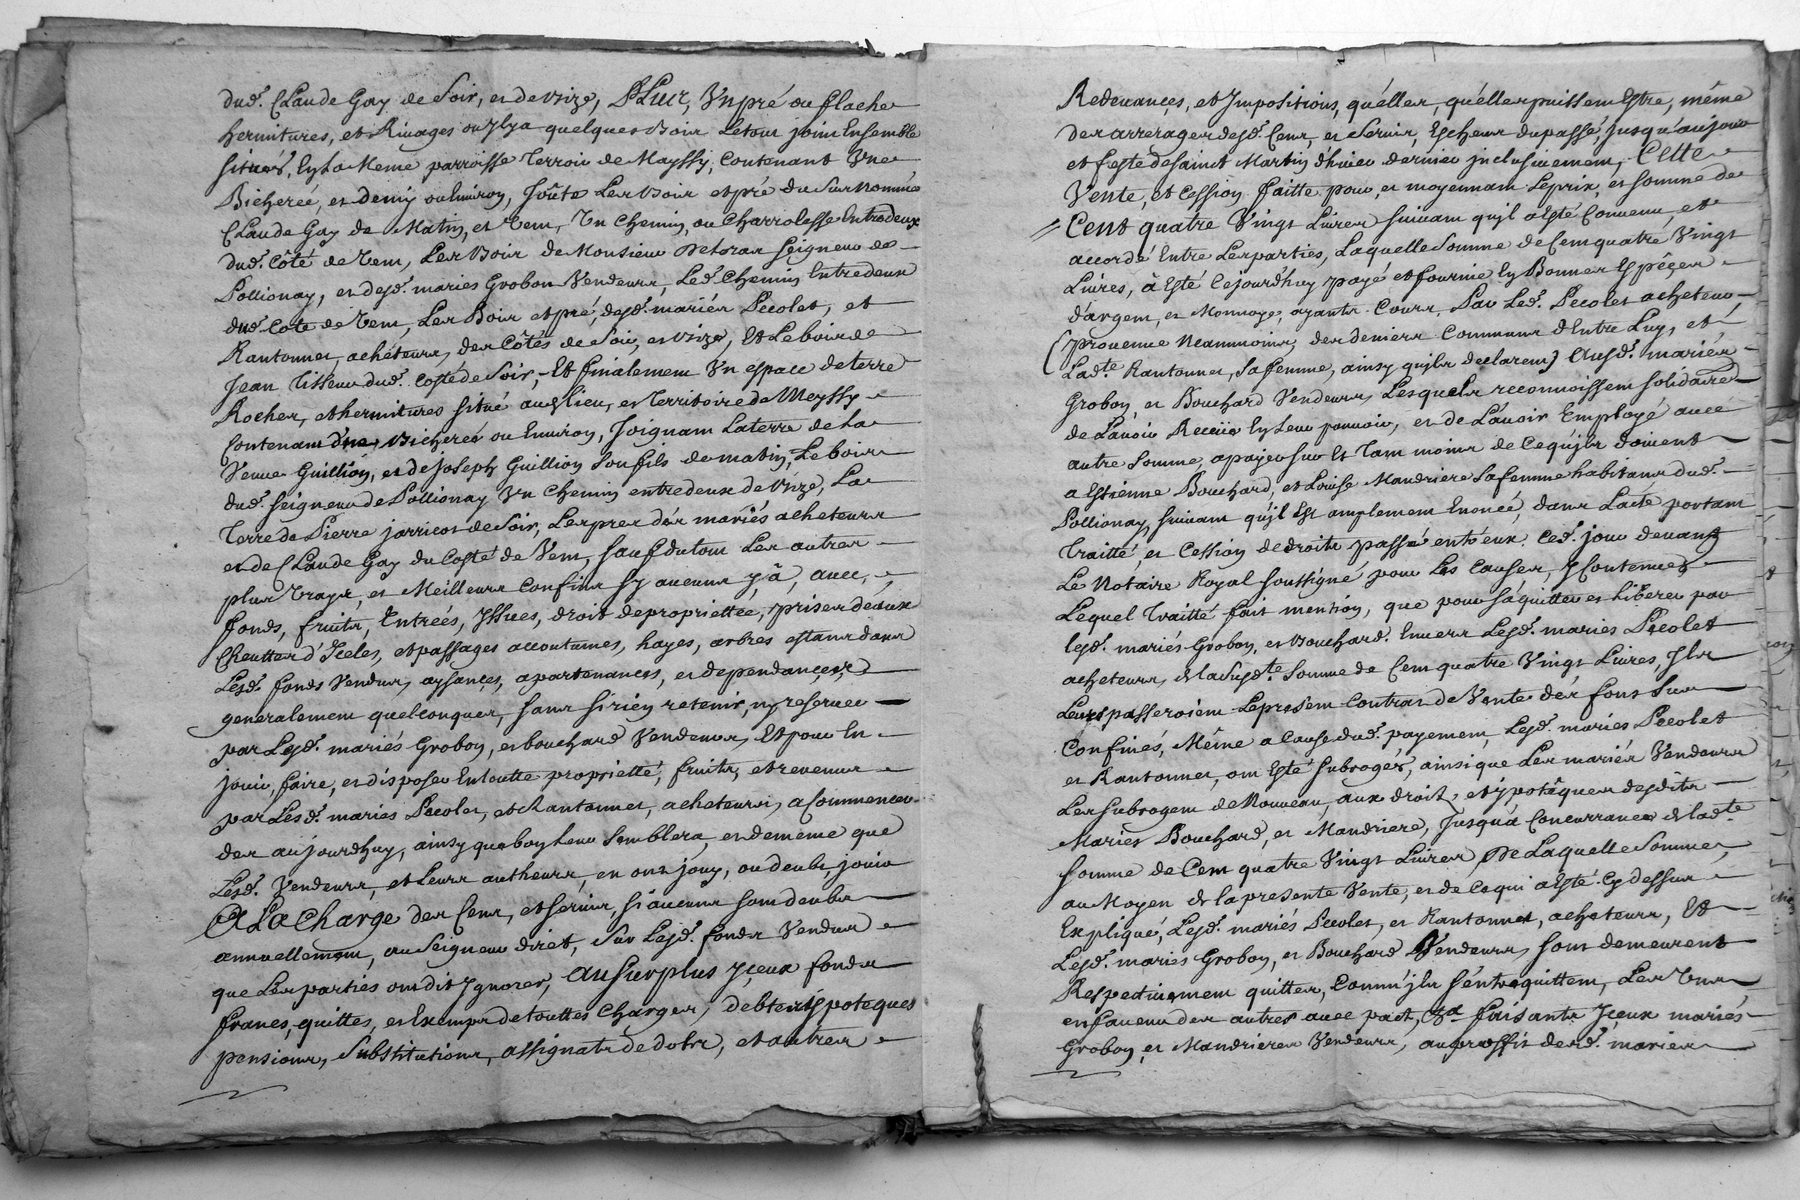 dud. Claude Gay de Soir, et de vize, Plus, Un pré ou flache
hermitures, et Rivages ou Il y a quelques Bois Le tout joint Ensemble
situés, En La Meme parroisse Terroir de Mayssy, Contenant Une
Bicherée, et demy ou Environ, Joûte Les Bois et pré du Surnommé
Claude Gay de Matin, et Vent, Un Chemin, ou Charrolesse Entredeux
dud. Côté de Vent, Les Bois de Monsieur Deloras Seigneur de
Pollionay, et desd. mariés Grobon Vendeurs, Led. Chemin Entredeux
dud. Cote de Vent, Les Bois et pré, desd. mariés Pecolet, et
Rantonnet, achéteurs, des Côtés de Soir, et vize, Et Le bois de
Jean Tisseur dud. costé de Soir, Et finalement Un espace de terre
Rocher, et hermitures situé aud. lieu, et Territoire de Meyssy
Contenant une Bicherée ou Environ, Joignant La terre de La
Veuve Guillion, et de Joseph Guillion Son fils de matin, Le bois
dud. Seigneur de Pollionay Un Chemin entredeux de vize, La
Terre de Pierre jarricot de Soir, Les prés des mariés acheteurs
et de Claude Gay du Costé de Vent, Sauf du tout Les autres
plus Vrays, et Meilleurs Confins Sy aucuns y à, avec,
fonds, fruits, Entrées, Yssues, droit de proprietée, prises d'eaux
Cheuttes d'Icelles, et passages accoutumés, hayes, arbres estans dans
Lesd. fonds Vendus, aysances, apartenances, et dependances,
generalement quelconques, Sans Si rien retenir, ny reserver
par Lesd. mariés Grobon, et bouchard Vendeurs, Et pour En
jouir, faire, et disposer En toutte proprietté, fruits, et revenus
par Lesd. mariés Pecolet, et Rantonnet, acheteurs, a Commencer
des aujourdhuy, ainsy que bon Leur Semblera, et de même que
Lesd. Vendeurs, et Leurs autheurs, en ont jouy, ou deubt, jouir
A La Charge des Cens, et servis, si aucuns sont deubs
annuellement, au Seigneur diret, Sur Lesd. fonds Vendus
que Les parties ont dit Ignorer, au surplus Iceux fonds
francs, quittes, et Exempts de touttes Charges, debtes ipoteques
pensions, Substitutions, assignats de dots, et autres
Redevances, et Impositions, quélles, qu'elles puissent Estre, même
des arrerages desd. Cens, et Servis, Escheus du passé, jusqu'aujour
et feste de saint Martin d'hiver dernier jnclusivement, Cette
Vente, et Cession faitte pour, et moyenant Le prix, et somme de
Cent quatre Vingt Livres suivant qu'jl a Esté Convenu, et
accordé Entre Les parties, Laquelle Somme de Cent quatre Vingt
Livres, à Esté Cejourd'huy payé et fournie En Bonnes Espêces
d'argent, et Monnoye, ayants Cours, Par Led. Pecolet acheteur,
(provenue Neanmoins, des deniers Communs d'Entre Luy, et
Ladte Rantonnet, Sa femme, ainsy qu'jls declarent) Ausd. mariés
Grobon, et Bouchard Vendeurs, Lesquels reconnoissent solidairement
de L'avoir Receüe En Leur pouvoir, et de L'avoir Employé avec
autre somme, a payer sur Et Tant moins de Cequ'jls doivent
a Estienne Bouchard, et Louise Mandriere Sa femme habitans dud.
Pollionay, suivant qu'jl Est amplement Enoncé, dans L'acte portant
Traitté, et Cession de droits passé entr'eux Ced. jour devant
Le Notaire Royal soussigné pour Les Causes, y Contenues
Lequel Traitté fait mention, que pour S'aquitter et Liberer par
lesd. mariés Grobon, et Bouchard. Envers Lesd. mariés Pecolet
acheteurs, de La susdte Somme de Cent quatre Vingt Livres, Jls
Leurs passeroient Le present Contrat de Vente des fonds Sus
Confinés, Même a Cause dud. payement, Lesd. mariés Pecolet
et Rantonnet, ont Esté subrogés, ainsi que Les mariés Vendeurs
Les subrogent de Nouveau, aux droits, et ypotêques desdits
Mariés Bouchard, et Mandriere, Jusqu'a Concurrance de ladte
Somme de Cent quatre Vingt Livres, De Laquelle Somme,
au Moyen de la presente Vente, et de Ce qui a Esté Cy dessus
Expliqué, Lesd. mariés Pecolet, et Rantonnet, acheteurs, Et
Lesd. mariés Grobon, et Bouchard Vendeurs, Sont demeurent
Respectivement quittes, Comm'jls S'entrequittent, Les Uns
en faveur des autres avec pact, faisants Iceux mariés
Grobon, et Mandrieres Vendeurs, au proffit desd. mariés